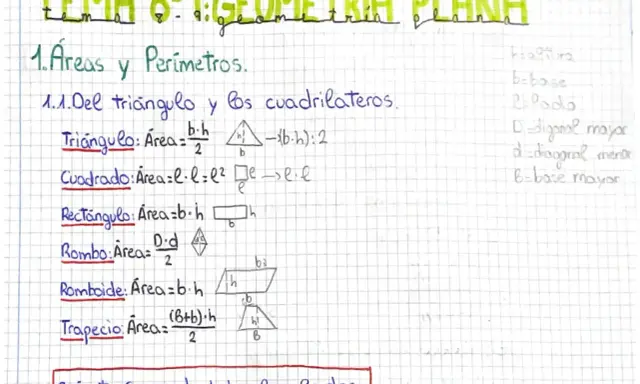 TEMA 8: GEOMETRÍA PLANA
1. Áreas y Perímetros.
1.1. Del triángulo y los cuadriláteros.
Triángulo: Área = b·h/2 h b → (b·h):2
Cuadrado: Área = l·l = l² l l → l·l
Rectángulo: Área = b·h h b
Rombo: Área = D·d/2
Romboide: Área = b·h h b
Trapecio: Área = (B+b)·h/2 b h B
h=altura
b=base
l=lado
D=diagonal mayor
d=diagonal menor
B=base mayor